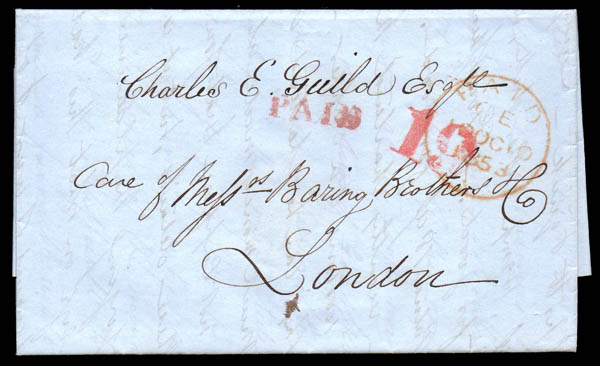 Charles E. Guild Esqre
PAID
19
PAID
10 OC 10
1853
Care of Messrs Baring Brothers & Co
London